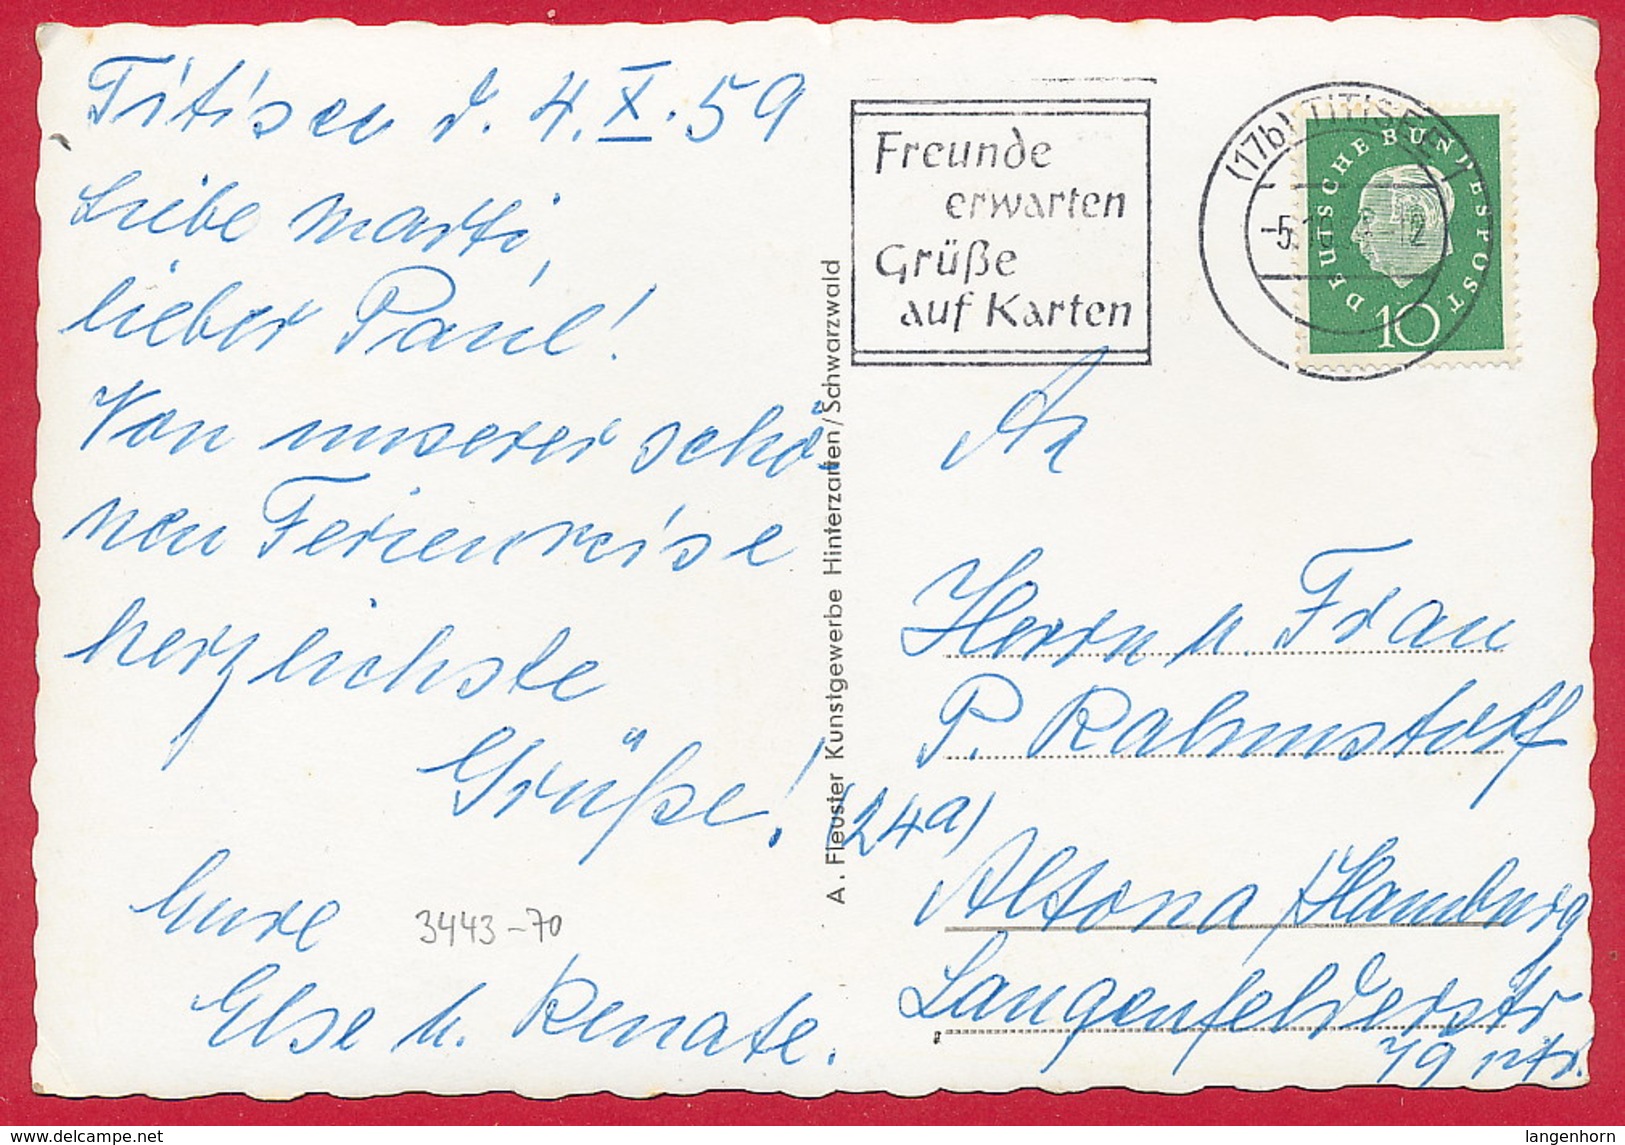 Titisee d. 4. X. 59
Liebe Marti,
lieber Paul!
Von unserer schö-
nen Ferienreise
herzlichste
Grüße!
Eure
Else u. Renate.
3443-70
A. Fleuster Kunstgewerbe Hinterzarten/Schwarzwald
Freunde
erwarten
Grüße
auf Karten
(17b) TITISEE
-5.10. -12
DEUTSCHE BUNDESPOST
10
An
Herrn u. Frau
P. Rahmstorff
(24a)
Altona/Hamburg
Langenfelderstr
79 ptr.
delcampe.net
langenhorn